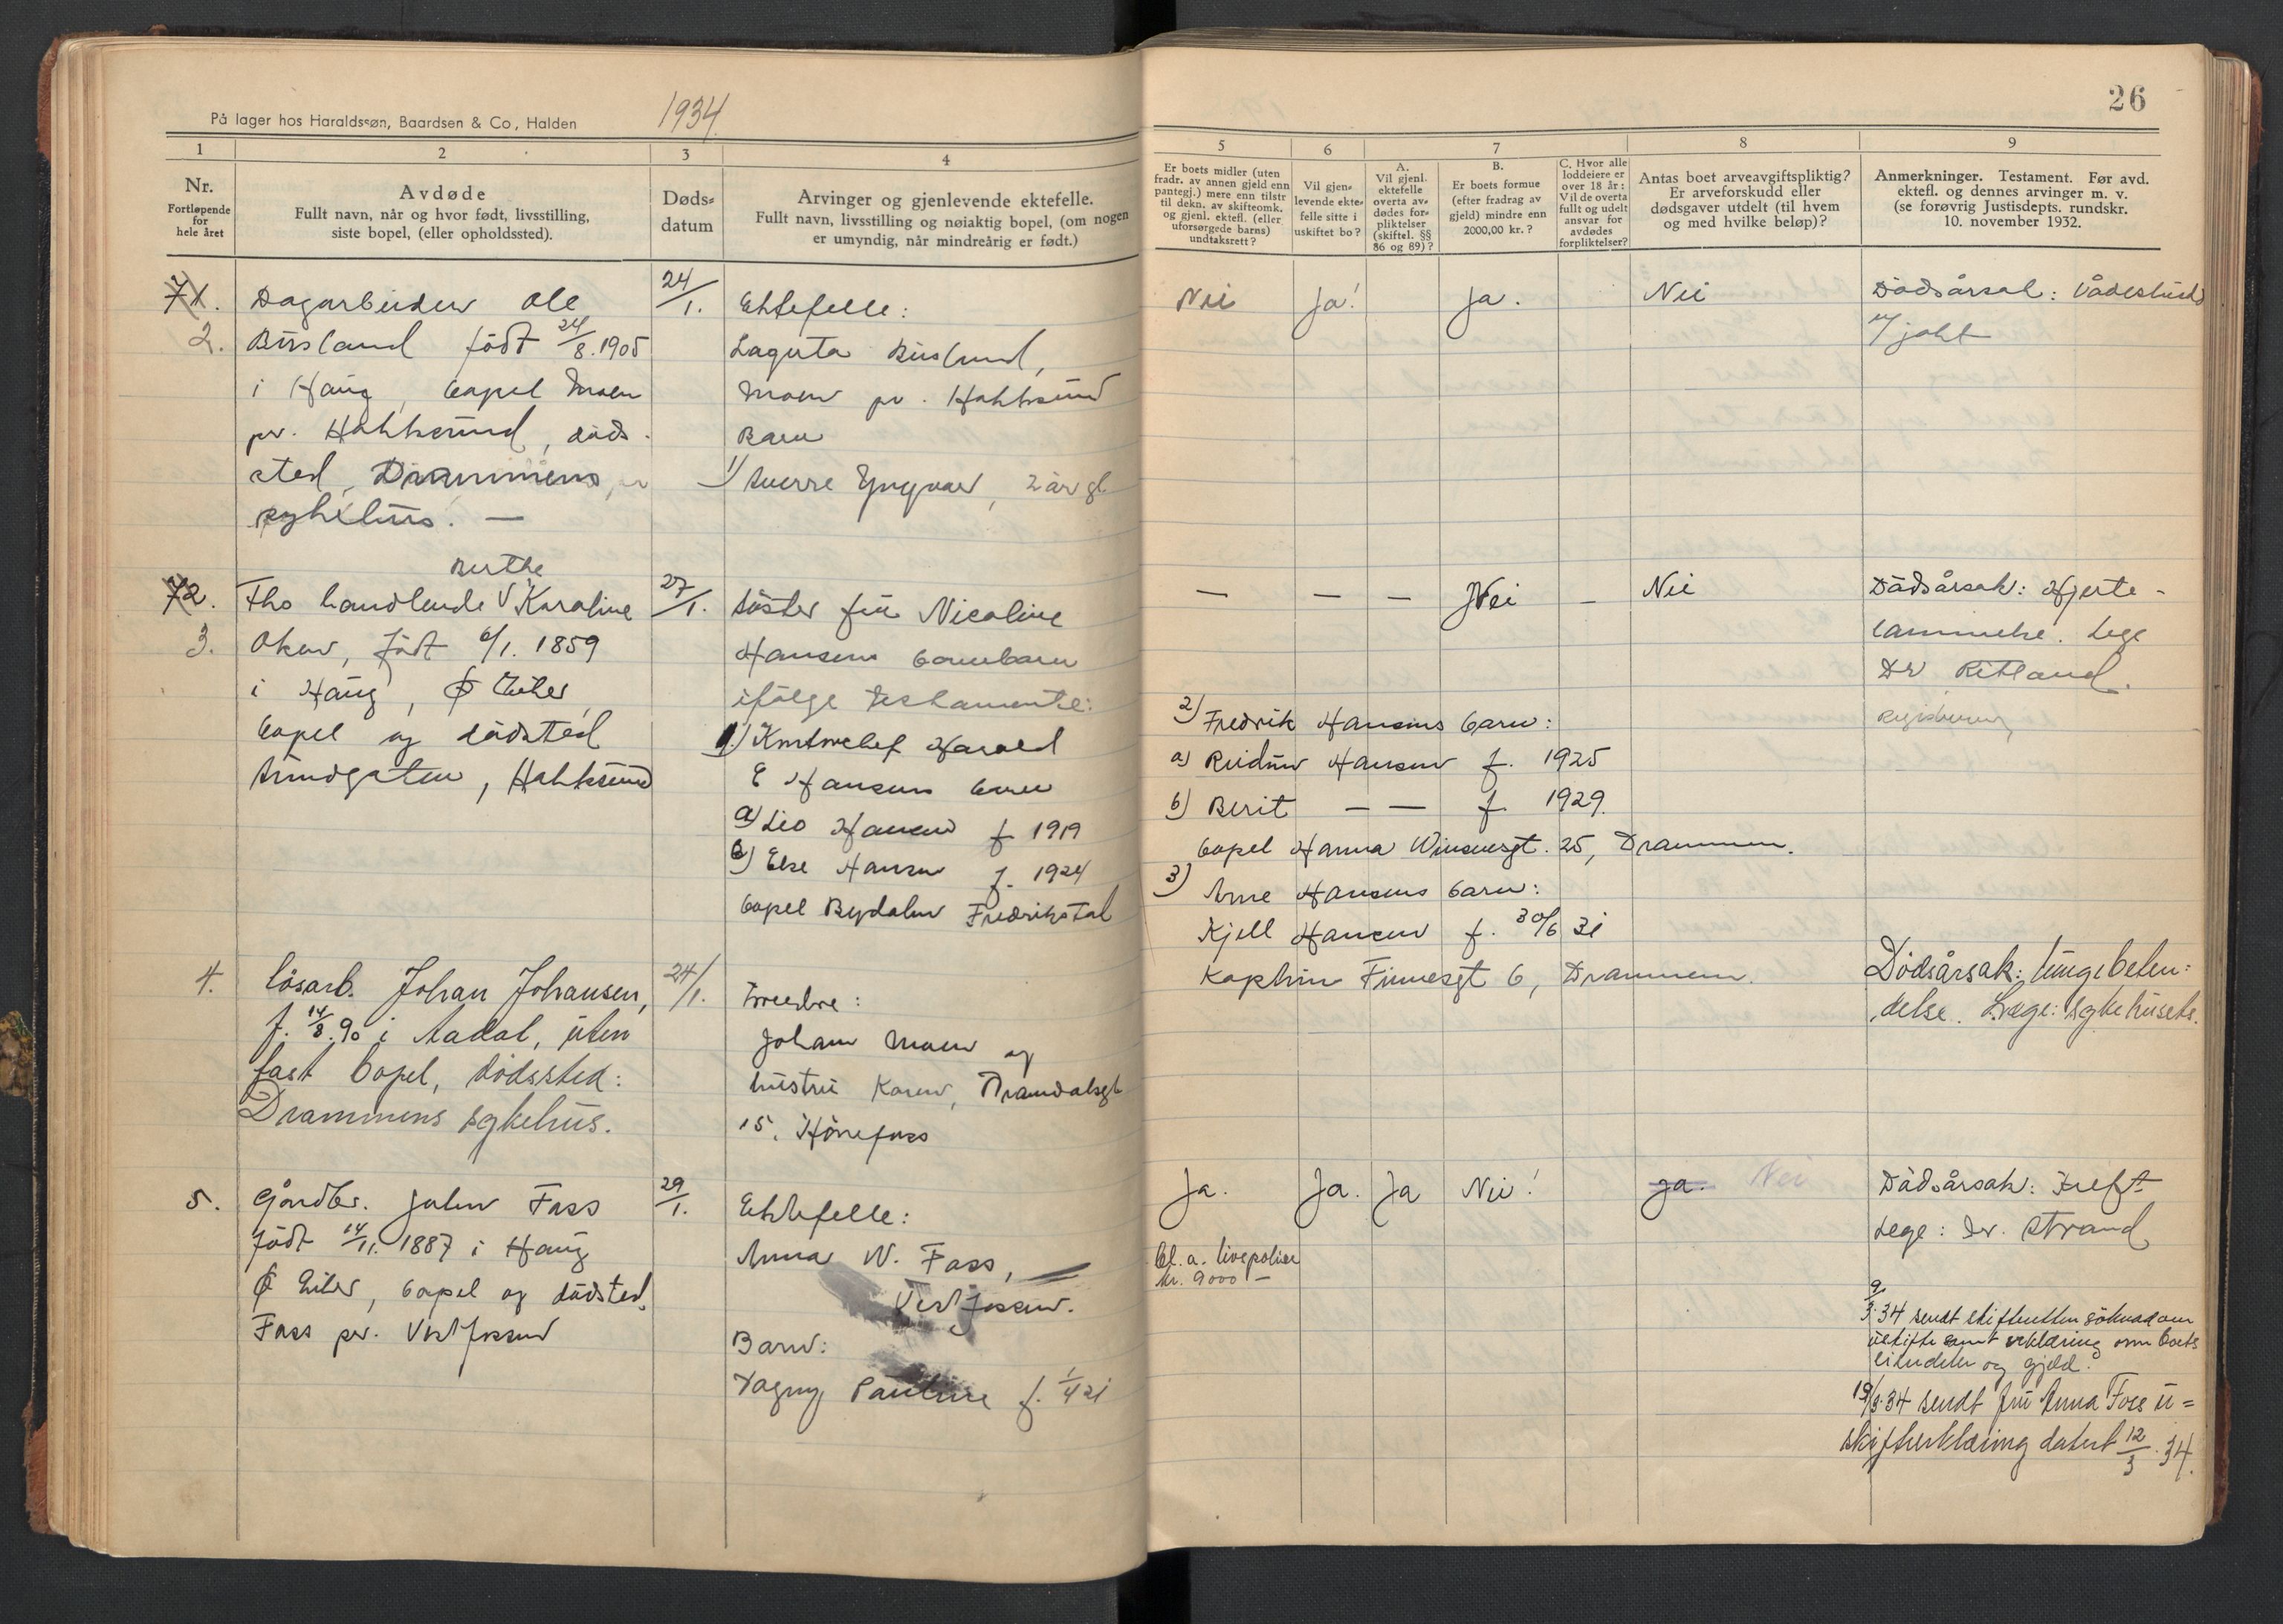 På lager hos Haraldssøn, Baardsen & Co, Halden
1934
26
1
2
3
4
5
6
7
8
9
Nr.
Fortløpende
for
hele året
Avdøde
Fullt navn, når og hvor født, livsstilling,
siste bopel, (eller opholdssted).
Døds-
datum
Arvinger og gjenlevende ektefelle.
Fullt navn, livsstilling og nøiaktig bopel, (om nogen
er umyndig, når mindreårig er født.)
Er boets midler (uten
fradr. av annen gjeld enn
pantegj.) mere enn tilstr
til dekn. av skifteomk.
og gjenl. ektefl. (eller
uforsørgede barns)
undtaksrett?
Vil gjen-
levende ekte-
felle sitte i
uskiftet bo?
A.
Vil gjenl.
ektefelle
overta av-
dødes for-
pliktelser
(skiftel. §§
86 og 89)?
B.
Er boets formue
(efter fradrag av
gjeld) mindre enn
2000,00 kr.?
C. Hvor alle
loddeiere er
over 18 år:
Vil de overta
fullt og udelt
ansvar for
avdødes
forpliktelser?
Antas boet arveavgiftspliktig?
Er arveforskudd eller
dødsgaver utdelt (til hvem
og med hvilke beløp)?
Anmerkninger. Testament. Før avd.
ektefl. og dennes arvinger m. v.
(se forøvrig Justisdepts. rundskr.
10. november 1932.
71.
2.
Dagarbeider Ole
Busland født 24/8.1905
i Haug, bopel Moen
pr. Hokksund, døds-
sted, Drammens
sykehus. —
24/1.
Ektefelle:
Buslund,
Moen pr. Hokksund
Barn
1) Sverre Yngvar, 2 år gl
Nei
Ja!
Ja.
Nei
Dødsårsak: Vådeskudd
u/ jakt
72.
3.
Berthe
Fhv handlende V Karoline
Oken, født 6/1. 1859
i Haug, Ø Eiker,
bopel og dødsted
Sundgaten, Hokksund
27/1.
Søster fru Nicoline
Hansens barnebarn
ifølge testamente:
1) Kontorchef Harald
E Hansens barn
a) Leo Hansen f 1919
b) Else Hansen f. 1924
bopel Bydalen Fredrikstad
—
—
—
Nei
—
Nei
Dødsårsak: Hjerte-
lammelse. Lege
Dr Ritland.
2) Fredrik Hansens barn:
a) Reidun Hansen f. 1925
b) Berit — — f. 1929.
bopel Hanna Winsnesgt. 25, Drammen.
3) Arne Hansens barn:
Kjell Hansen f. 30/6 31
Kaptein Finnesgt 6, Drammen.
4.
Løsarb. Johan Johansen,
f. 14/8.90 i Aadal, uten
fast bopel, dødssted:
Drammens sykehus.
24/1.
Foreldre:
Johan Moen og
hustru Karen,
15, Hönefoss
Dødsårsak: lungebeten-
delse. Læge: sykehusets.
5.
Gårdbr. Johan Foss
født 14/11. 1887 i Haug
Ø Eiker, bopel og dødsted,
Foss pr. Vestfossen
29/1.
Ektefelle:
Anna N. Foss,
Vestfossen.
Barn:
Dagny Pauline f. 1/4 21
Ja.
Bl. a. livspoliser
kr. 9000 —
Ja.
Ja
Nei!
Ja. Nei
Dødsårsak: Kreft
Lege: Dr. Strand
9/3.34 sendt skifteretten søknad om
uskifte samt erklæring om boets
eiendeler og gjeld.
19/3.34 sendt fru Anna Foss u=
skifteerklæring datert 12/3.34.